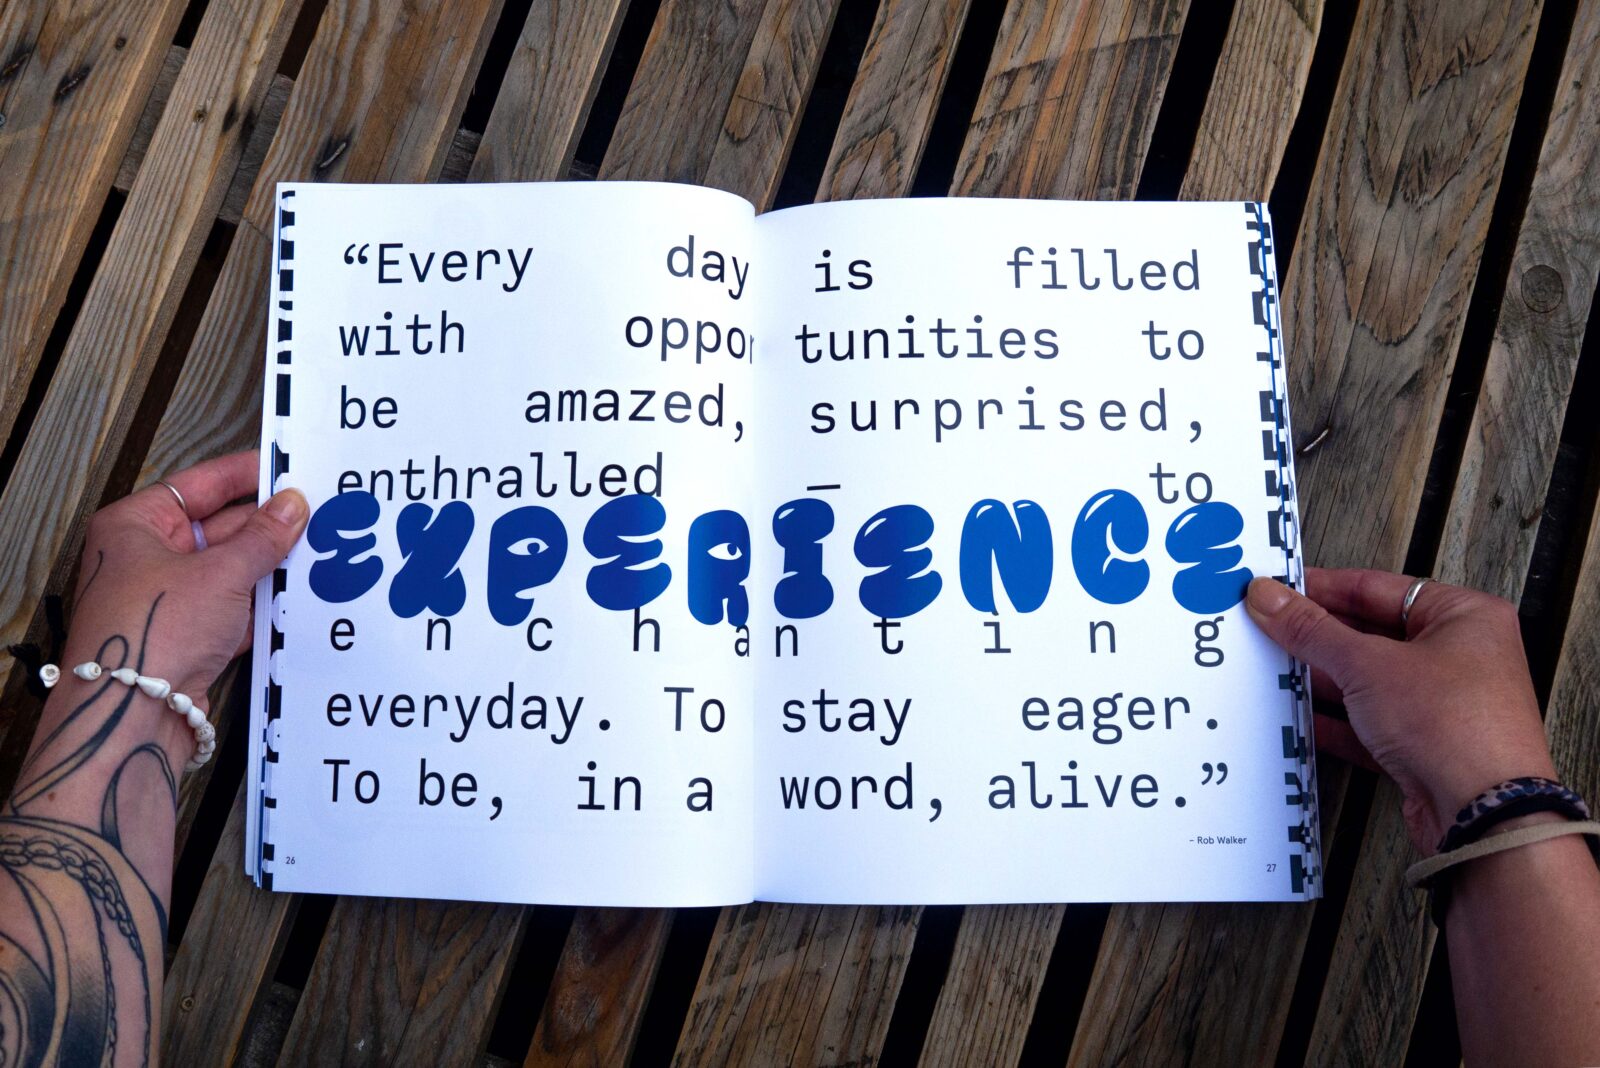 “Every day is filled
with opportunities to
be amazed, surprised,
enthralled – to
EXPERIENCE
enchanting
everyday. To stay eager.
To be, in a word, alive.”
– Rob Walker
26
27